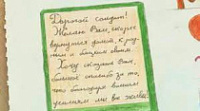 Дорогой солдат!
Желаю Вам, скорее
вернуться домой, к род-
ным и близким своим.
Хочу сказать Вам,
большое спасибо за то,
что благодаря вашим
усилиям мы все живы